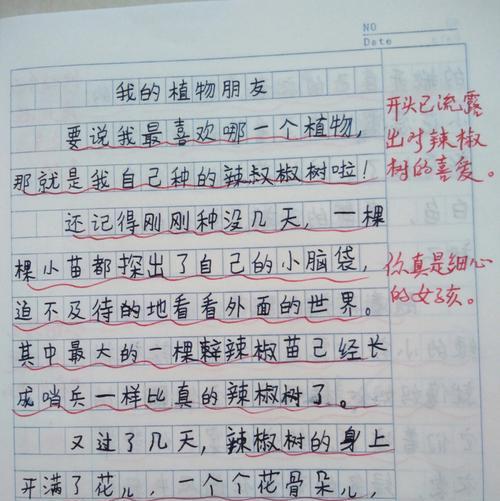 NO
Date
我的植物朋友
要说我最喜欢哪一个植物,
那就是我自己种的辣叔椒树啦!
还记得刚刚种没几天,一棵
棵小苗都探出了自己的小脑袋,
迫不及待的地看看外面的世界。
其中最大的一棵辣椒苗已经长
成哨兵一样比真的辣椒树了。
又过了几天,辣椒树的身上
开满了花儿,一个个花骨朵儿
开头已流露
出对辣椒
树的喜爱。
你真是细心
的女孩。